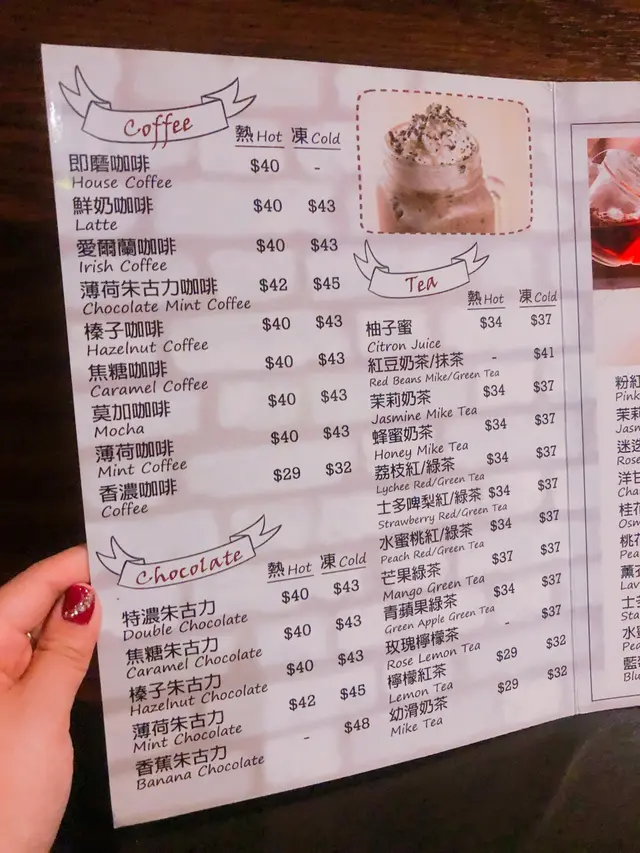 Coffee
熱 Hot 凍 Cold
即磨咖啡 $40 -
House Coffee
鮮奶咖啡 $40 $43
Latte
愛爾蘭咖啡 $40 $43
Irish Coffee
薄荷朱古力咖啡 $42 $45
Chocolate Mint Coffee
榛子咖啡 $40 $43
Hazelnut Coffee
焦糖咖啡 $40 $43
Caramel Coffee
莫加咖啡 $40 $43
Mocha
薄荷咖啡 $40 $43
Mint Coffee
香濃咖啡 $29 $32
Coffee
Chocolate
熱 Hot 凍 Cold
特濃朱古力 $40 $43
Double Chocolate
焦糖朱古力 $40 $43
Caramel Chocolate
榛子朱古力 $40 $43
Hazelnut Chocolate
薄荷朱古力 $42 $45
Mint Chocolate
香蕉朱古力 - $48
Banana Chocolate
Tea
熱 Hot 凍 Cold
柚子蜜 $34 $37
Citron Juice
紅豆奶茶/抹茶 - $41
Red Beans Mike/Green Tea
茉莉奶茶 $34 $37
Jasmine Mike Tea
蜂蜜奶茶 $34 $37
Honey Mike Tea
荔枝紅/綠茶 $34 $37
Lychee Red/Green Tea
士多啤梨紅/綠茶 $34 $37
Strawberry Red/Green Tea
水蜜桃紅/綠茶 $34 $37
Peach Red/Green Tea
芒果綠茶 $37 $37
Mango Green Tea
青蘋果綠茶 $34 $37
Green Apple Green Tea
玫瑰檸檬茶 - $37
Rose Lemon Tea
檸檬紅茶 $29 $32
Lemon Tea
幼滑奶茶 $29 $32
Mike Tea
粉紅
Pink
茉莉
Jasm
Rose
洋甘
Cha
桂花
Osm
桃花
Pea
Lav
士多
Sta
水
Pea
Blu